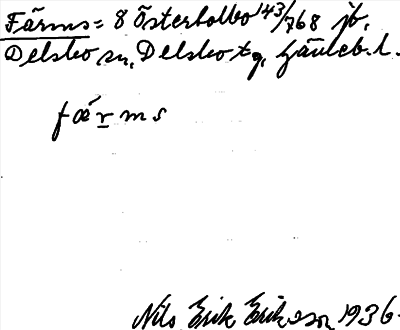 Färms = 8 Österbölbo 143/768 jb.
Delsbo sn, Delsbo tg, Gävleb. l.
fæ´r̲ms
Nils Erik Eriksson 1936.